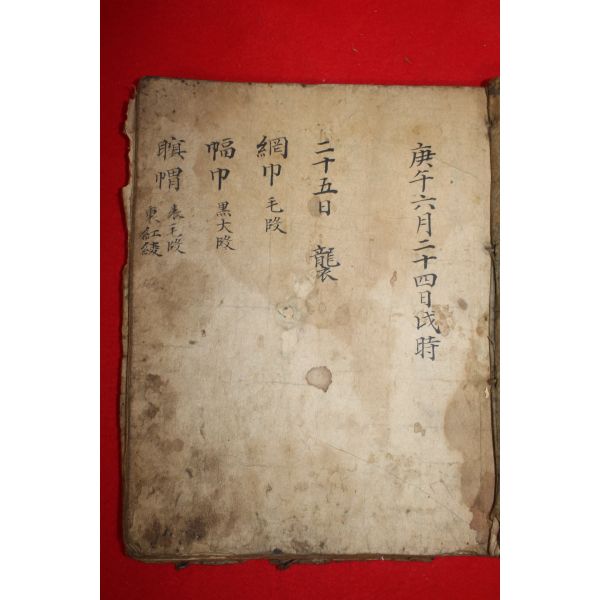 庚午六月二十四日戌時
二十五日 襲
網巾 毛段
幅巾 黑大段
瞑帽 表毛段
東紅綾